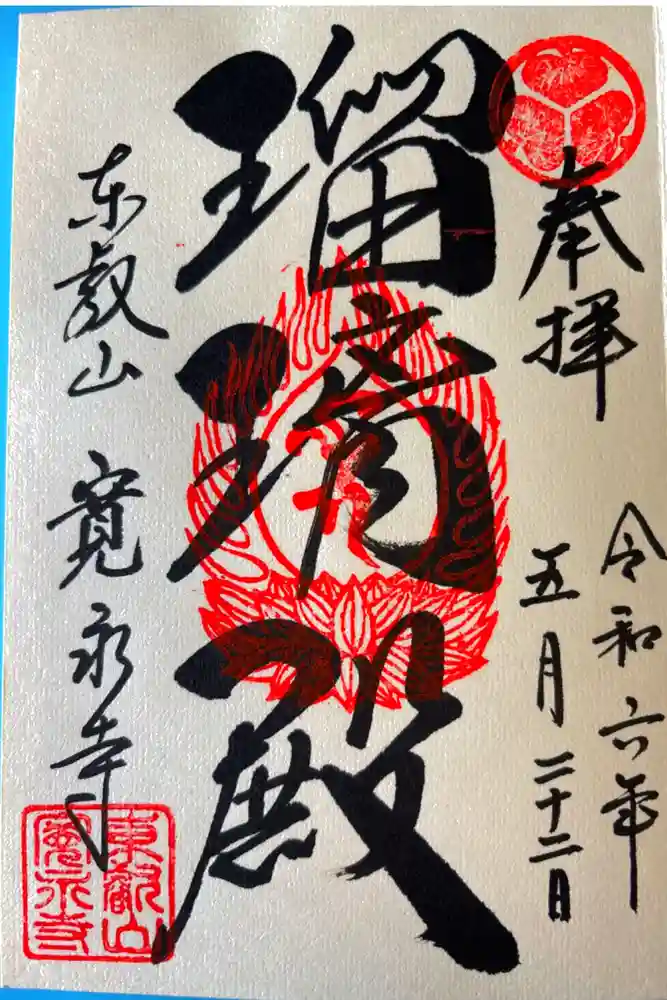 奉拝
令和六年
五月二十二日
瑠璃殿
东叡山 寛永寺
東叡山
寛永寺